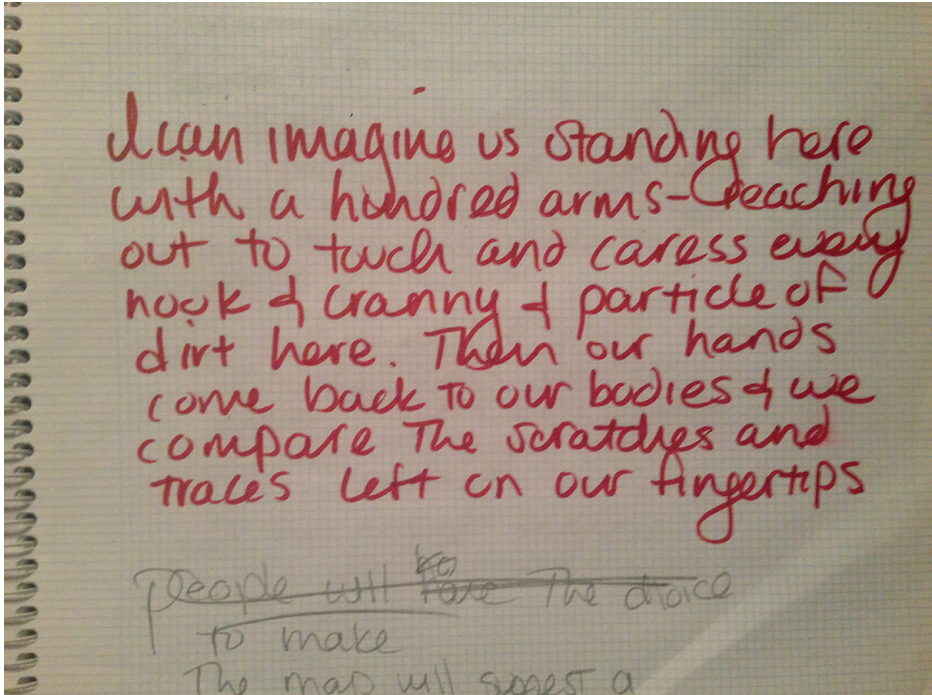 I can imagine us standing here
with a hundred arms-reaching
out to touch and caress every
nook & cranny & particle of
dirt here. Then our hands
come back to our bodies & we
compare The scratches and
traces left on our fingertips
people will have The choice
to make
The map will suggest a